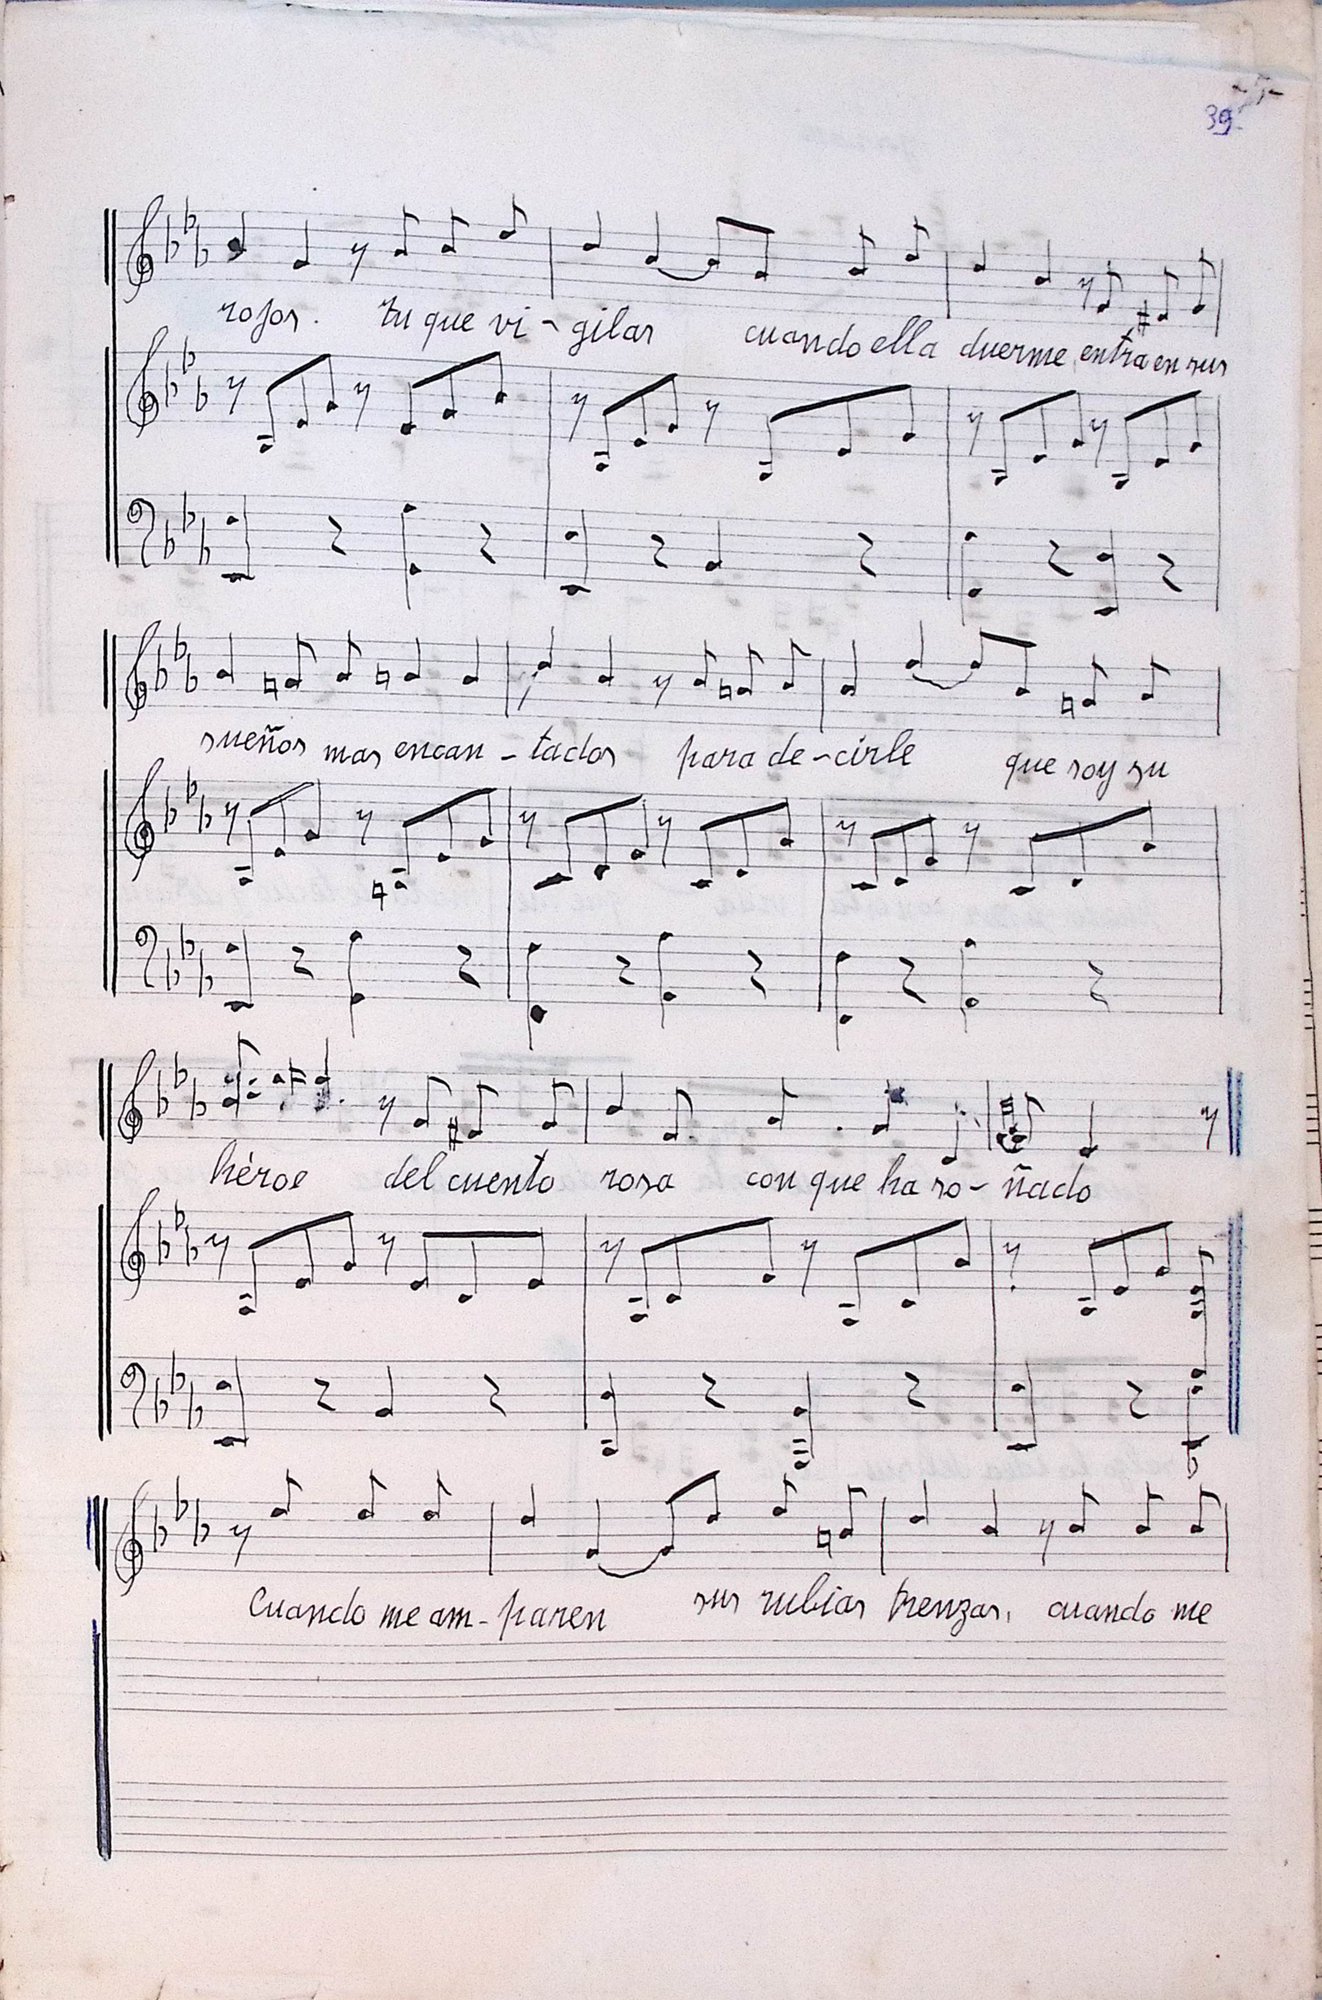 39
-5-
rojos. tu que vi-gilas cuando ella duerme entra en sus
sueños mas encan-tados para de-cirle que soy su
héroe del cuento rosa con que ha so-ñado
Cuando me am-paren sus rubias trenzas, cuando me